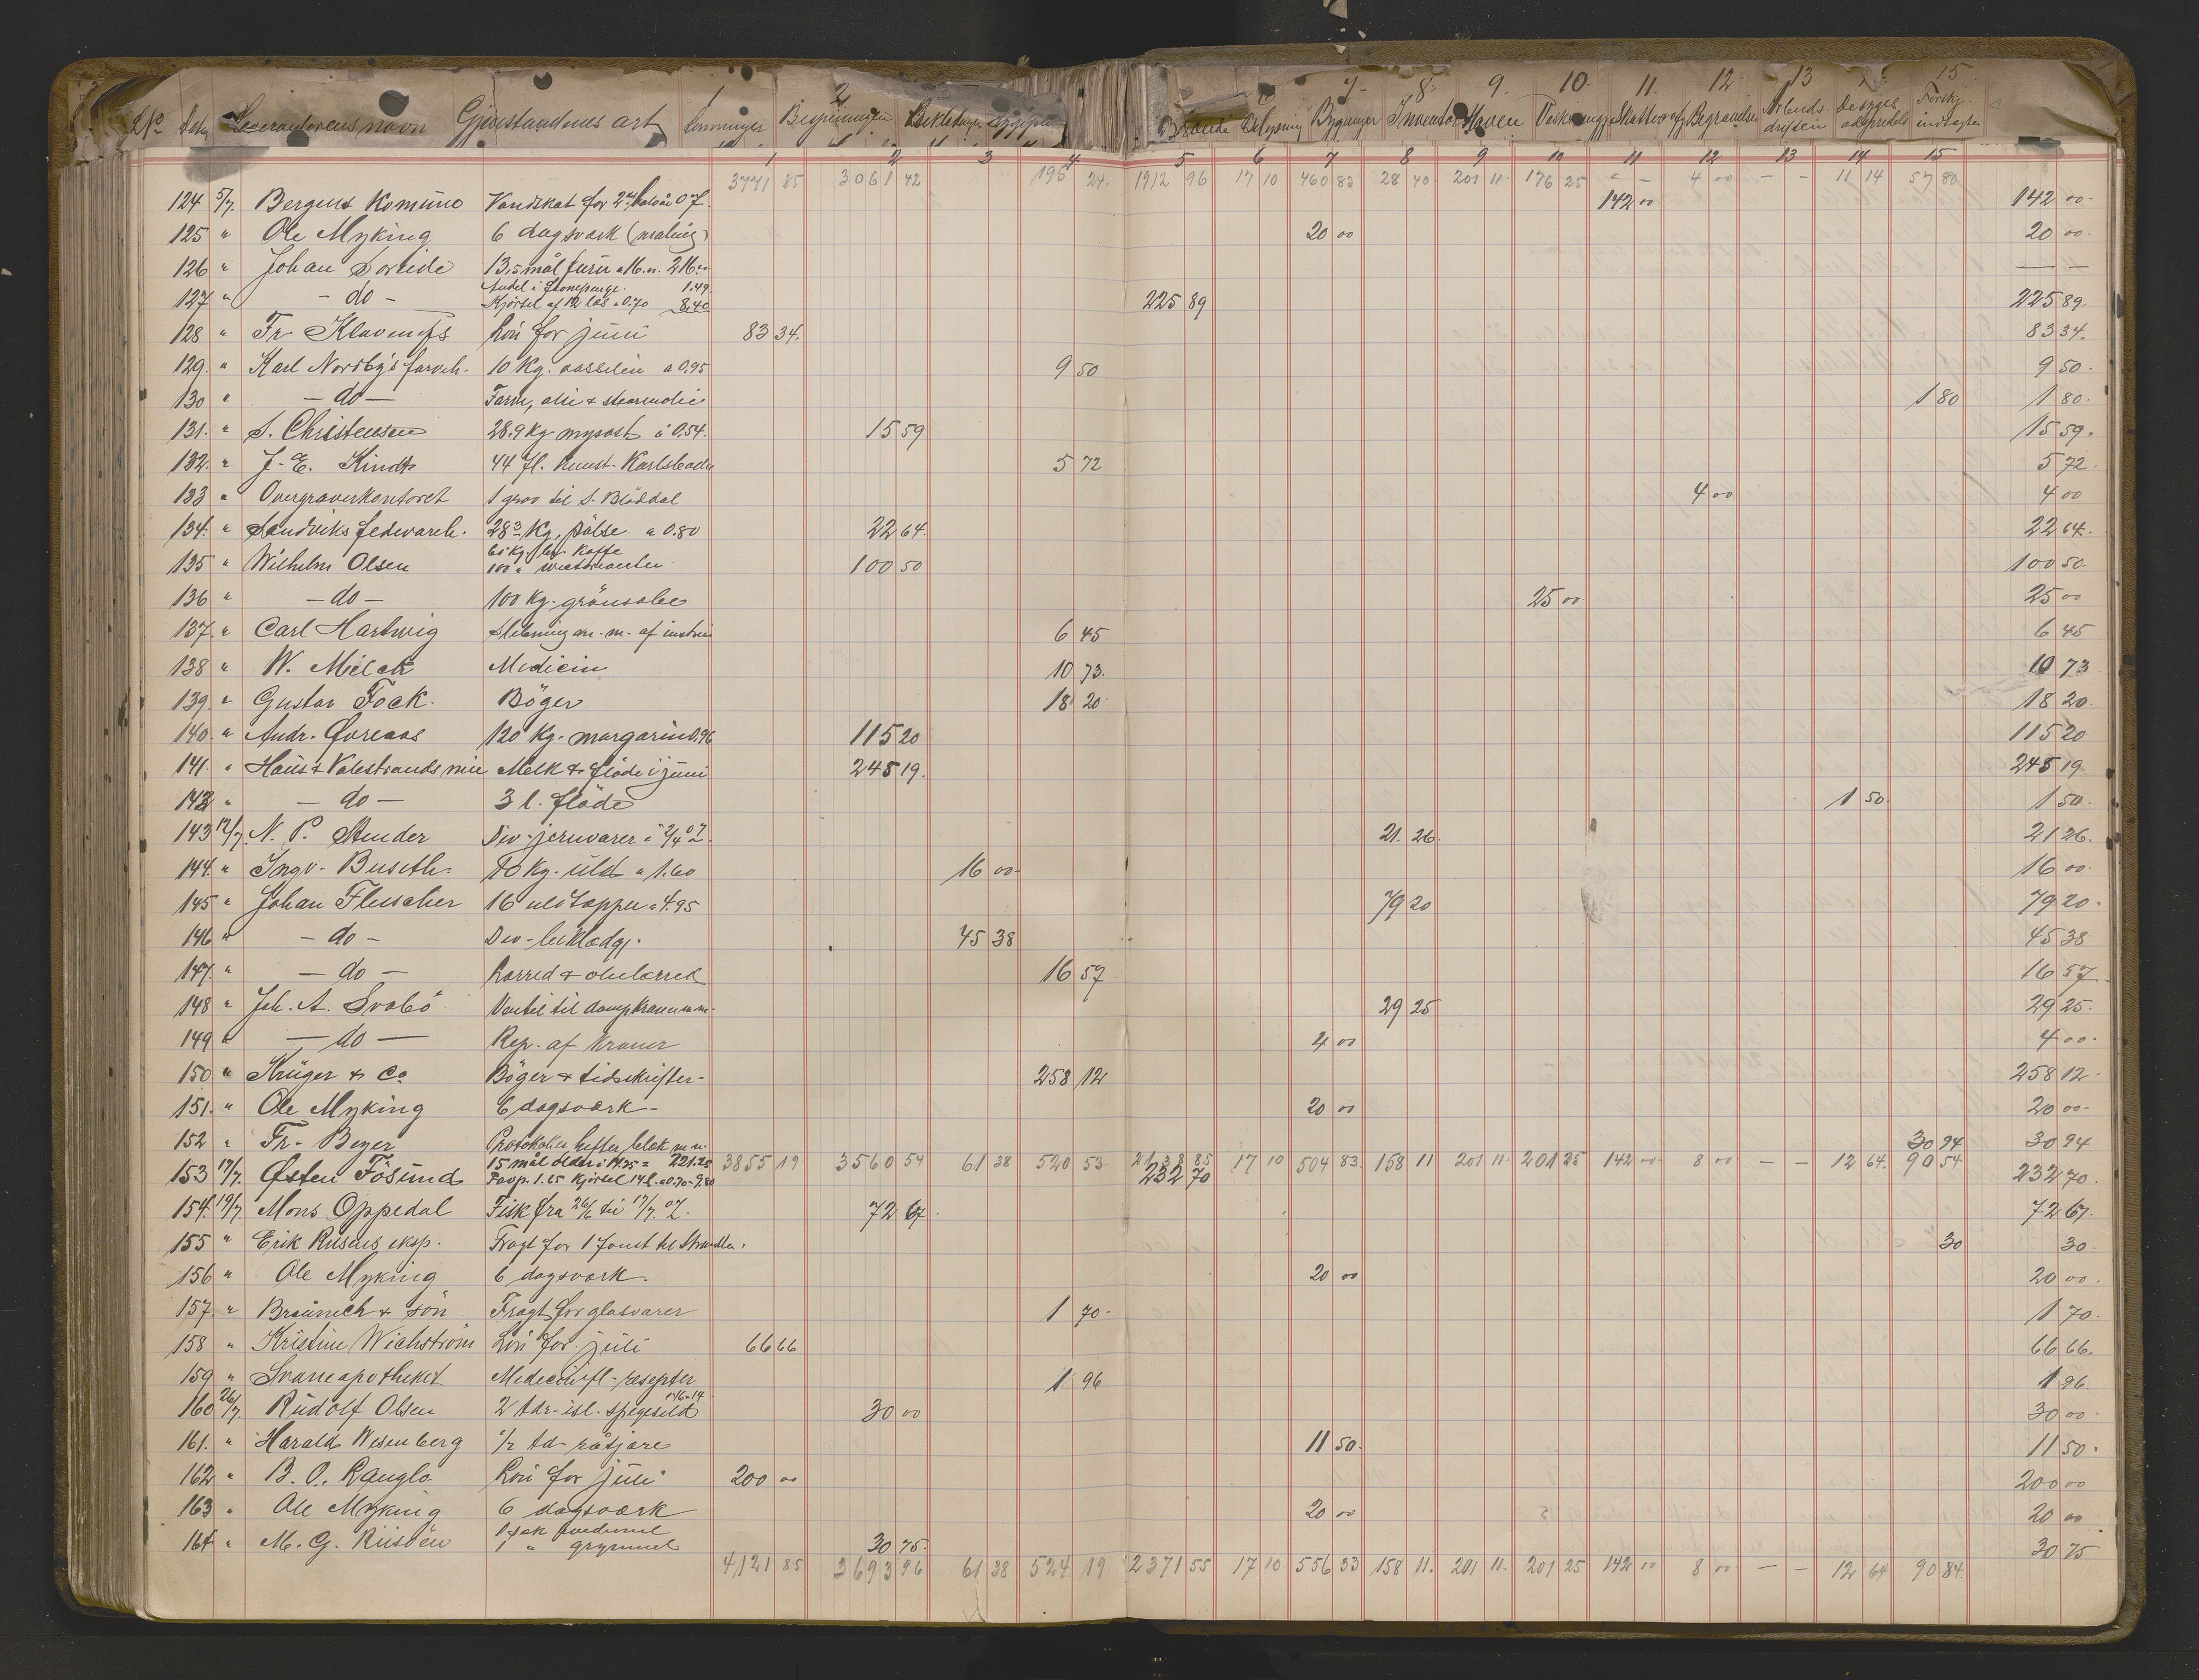 1 2 7 8 9. 10. 11. 12 13 15
No Leverandørens navn Gjenstandens art Lønninger Bespisningen Beklædningen Brænde Belysning Bygninger Inventar Haven
1 2 3 4 5 6 7 8 9 10 11 12 13 14 15
3771 85 3061 42 195 24. 1912 96 17 10 460 83 28 40 201 11 176 25 " - 4 00 - - 11 14 57 80
124 5/7. Bergens Komune Vandskat for 2det halvår 07. 142 00 142 00
125 " Ole Myking 6 dagsværk (maling) 20 00 20 00
126 " Johan Soreide 13,5 mål furu a 16.00 216.00 — —
Andel i 1.49
127 " - do - Kjørsel af 12 læs a 0.70 8.40 225 89 225 89
128 " Fr. Løn for juni 83 34. 83 34.
129. " Karl Nordby's farveh. 10 Kg. vaselin a 0.95 9 50 9 50
130 " — do — Farve, olie & 1 80 1 80
131. " S. Christensen 28.9 Kg mysost á 0.54. 15 59 15 59.
132. " J. E. Kindt 44 fl. kunst. Karlsbader 5 72 5 72
133 " Overgraverkontoret 1 grav til S. 4 00 4 00
134. " Sandviks fedevareh. 28.3 Kg. pølse a 0.80 22 64. 22 64.
60 Kg. kaffe
135 " Wilhelm Olsen 100 " 100 50 100 50
136 " — do — 100 Kg. grønsåbe 25 00 25 00
137. " Carl Hartwig Slibning m. m. af instru 6 45 6 45
138 " W. Milch Medicin 10 73. 10 73
139. " Gustav Fock. Bøger 18 20 18 20
140. " Andr. Øvreaas 120 Kg. margarin 0.96 115 20 115 20
141. " Haus & Valestrands mei Melk & fløde i juni 245 19. 245 19
142 " — do — 3 l. fløde 1 50 1 50
143 12/7. N. P. Stender Div. jernvarer i 2/4 07. 21. 26. 21 26.
144. " Ingv. Buseth. 10 Kg. uld a 1.60 16 00 16 00
145 " Johan Fleischer 16 uldtæpper a 4.95 79 20 79 20
146 " - do - Div. beklædgj. 45 38 45 38
147. " — do — Lærred & olielærred 16 57 16 57
148 " Joh. A. Svabö Ventil til dampkran m.m. 29 25 29 25
149 " — do — Rep. af kraner 4 00 4 00
150 " Krüger & Co Bøger & tidskrifter 258 12 258 12
151. " Ole Myking 6 dagsværk 20 00 20 00
152 " Fr. Beyer Protokoller hefter, blok m.m. 30 94 30 94
15 mål older a 14.75 = 221.25 3855 19 3560 54 61 38 520 53 2138 85 17 10 504 83. 158 11 201 11. 201 25 142 00 8 00 - - 12 64. 90 54
153 17/7. Østen Fösund Favp. 1.65 Kjørsel 14 l. a 0.70 = 9.80 232 70 232 70
154. 19/7. Mons Oppedal Fisk fra 26/6 til 17/7. 07. 72 67 72 67
155 " Erik Rusens eksp. Fragt for 1 30 30
156 " Ole Myking 6 dagsværk. 20 00 20 00
157. " Bräunich & søn Fragt for glasvarer 1 70 1 70
158 " Kristine Wichström Løn for juli 66 66 66 66.
159 " Svaneapotheket Medicin fl. resepter 1 96 1 96
160 26/7. Rudolf Olsen 2 tdr. isl. spegesild 30 00 30 00
161. " Harald Wesenberg 1/2 td råtjære 11 50 11 50
162 " B. O. Rauglo Løn for juli 200 00 200 00
163 " Ole Myking 6 dagsværk 20 00 20 00
1 sæk hvedemel
164 " M. G. Riisöen 1 " grynmel 30 75 30 75
4121 85 3693 96 61 38 524 19 2371 55 17 10 556 33 158 11. 201 11. 201 25 142 00 8 00 - - 12 64 90 84.